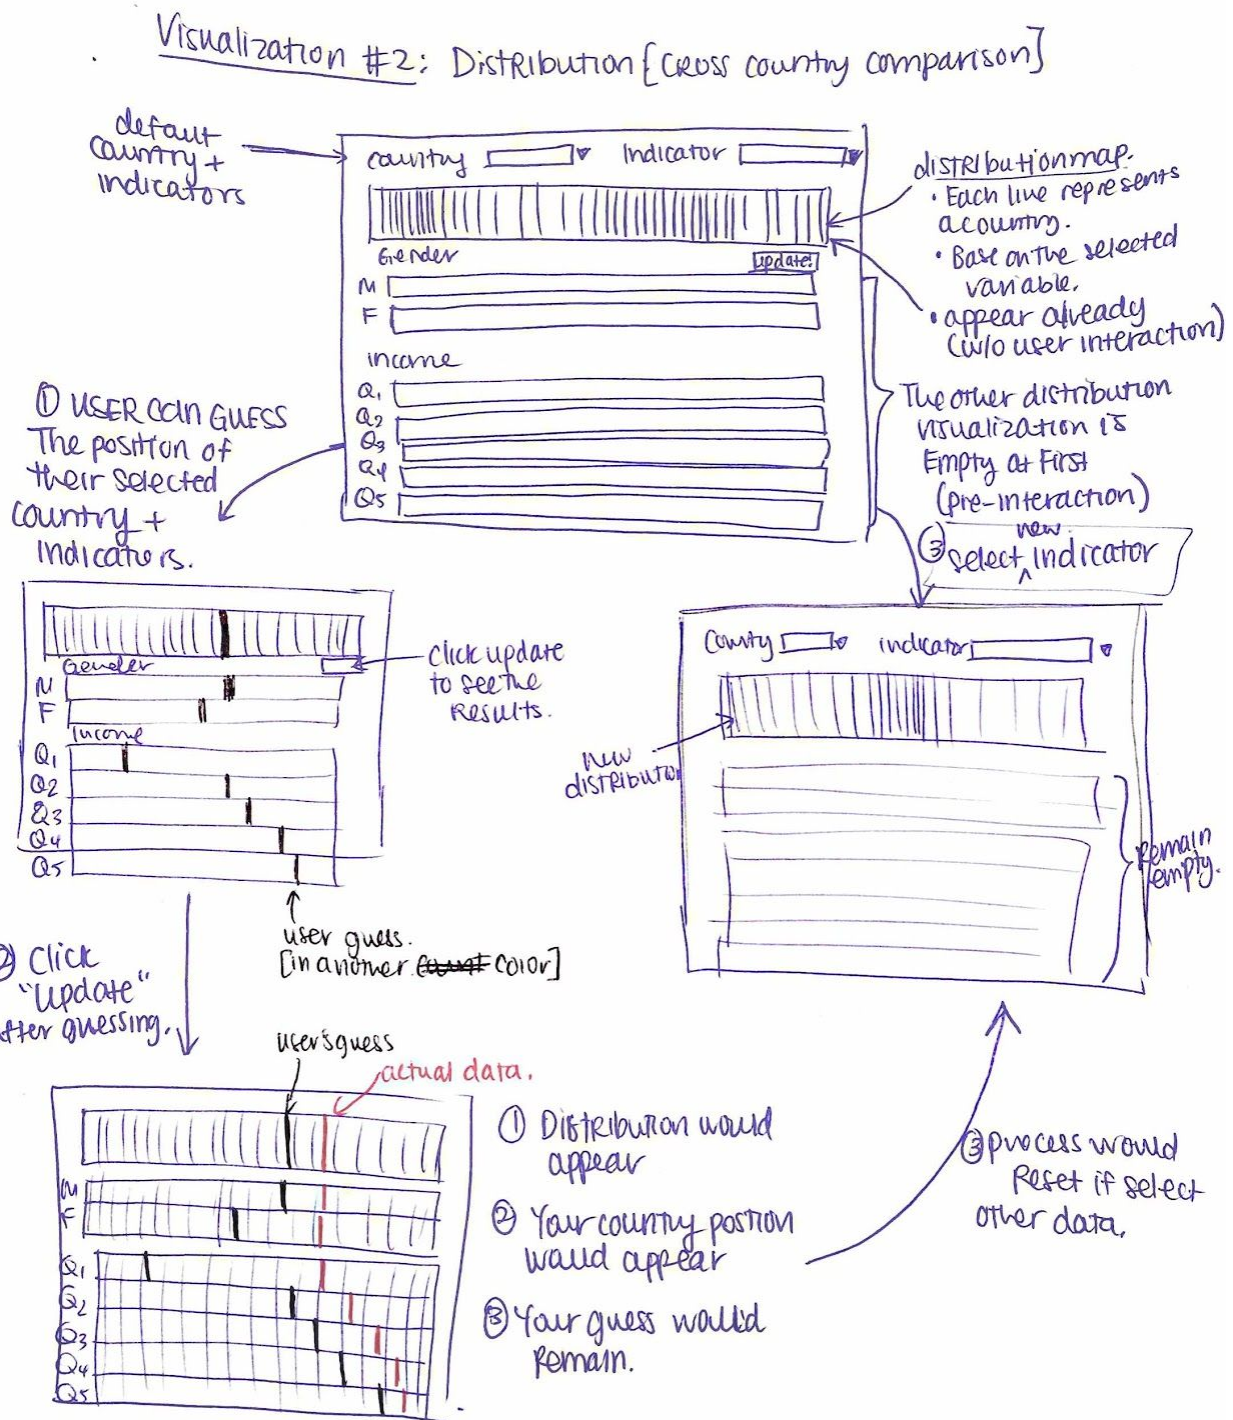 Visualization #2: Distribution [cross country comparison]
default
country +
indicators
country
Indicator
distribution map.
• Each line represents
a country.
• Base on the selected
variable.
• appear already
(w/o user interaction)
Gender
update!
M
F
income
Q1
Q2
Q3
Q4
Q5
The other distribution
visualization is
Empty at First
(pre-interaction)
① USER can GUESS
The position of
their selected
country +
indicators.
③ select new indicator
Gender
M
F
Income
Q1
Q2
Q3
Q4
Q5
click update
to see the
Results.
user guess.
[in another color]
County
indicator
new
distributio
Remain
empty.
② Click
"update"
after guessing.
user's guess
actual data.
M
F
Q1
Q2
Q3
Q4
Q5
① Distribution would
appear
② Your country postion
would appear
③ Your guess would
Remain.
③ process would
Reset if select
other data.